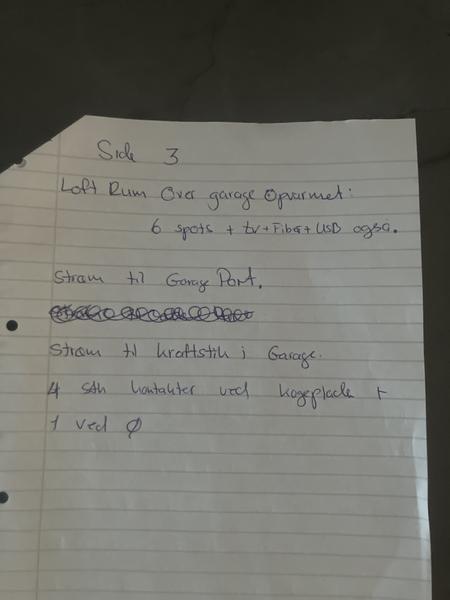 Side 3
Loft Rum Over garage Opvarmet:
6 spots + tv + Fiber + USB også.
Strøm til Garage Port.
Strøm til kraftstik i Garage.
4 stk kontakter ved kogeplade +
1 ved Ø